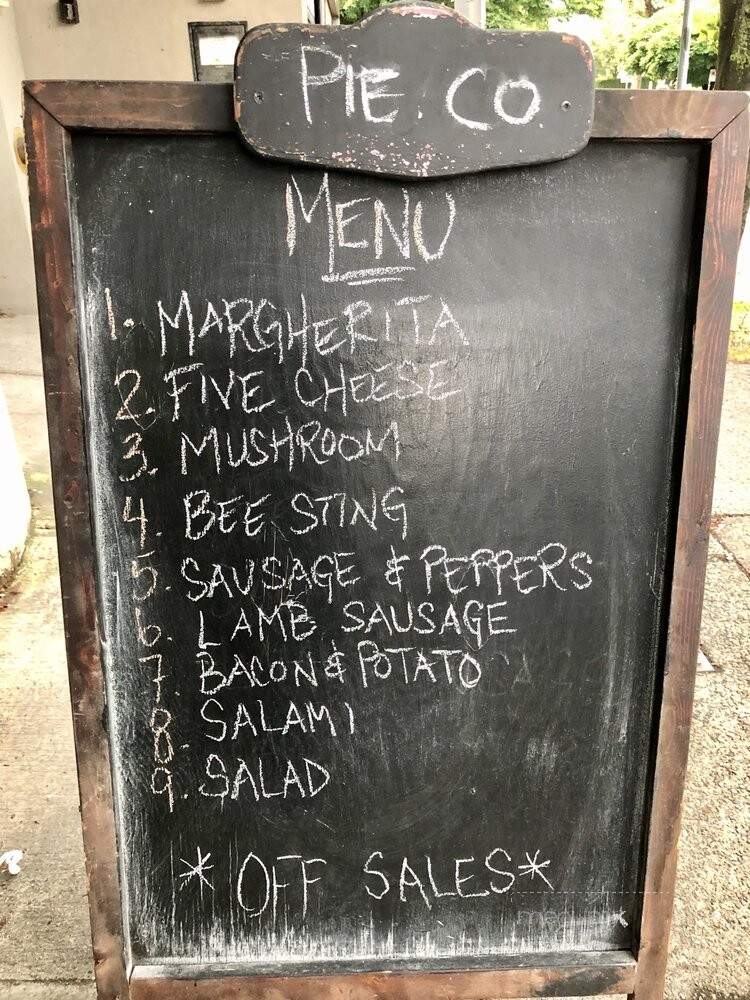 PIE. CO
MENU
1. MARGHERITA
2. FIVE CHEESE
3. MUSHROOM
4. BEE STING
5. SAUSAGE & PEPPERS
6. LAMB SAUSAGE
7. BACON & POTATO
8. SALAMI
9. SALAD
*OFF SALES*